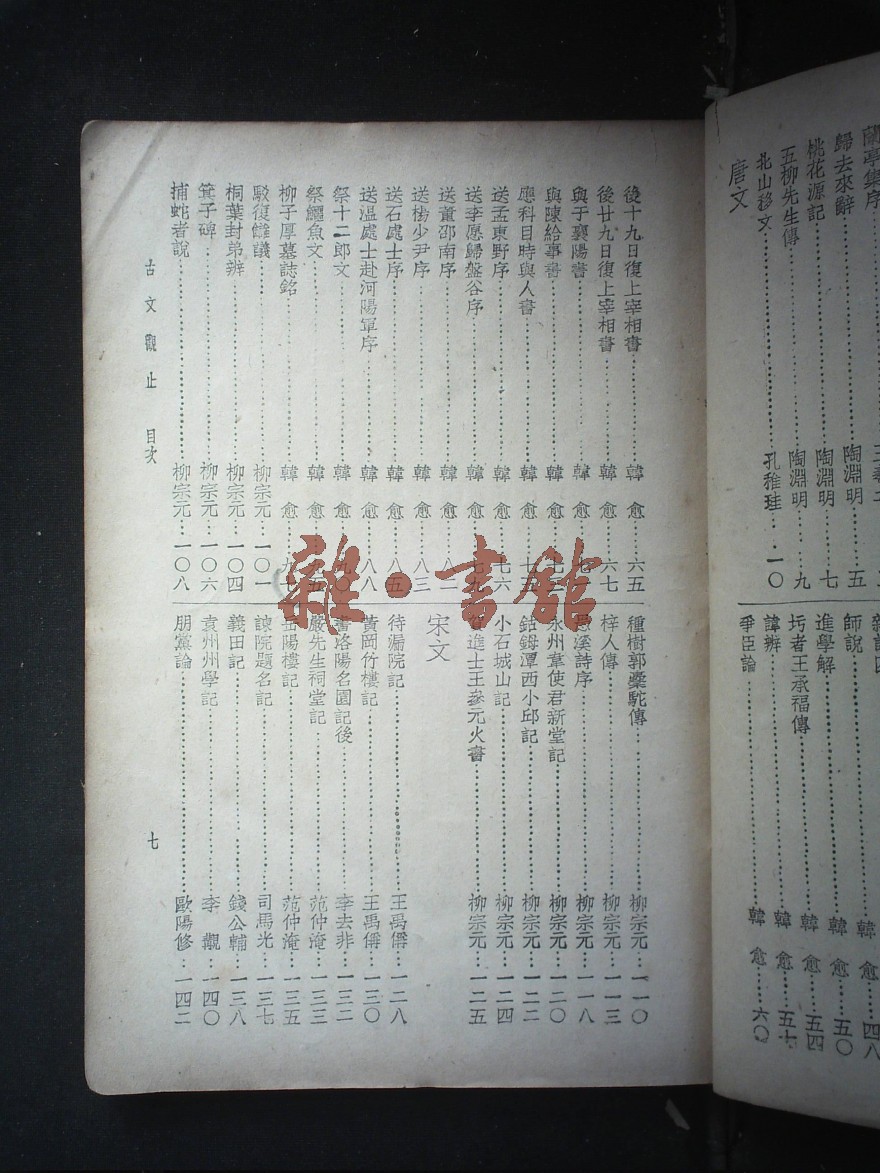 蘭亭集序
歸去來辭 陶淵明 五
桃花源記 陶淵明 七
五柳先生傳 陶淵明 九
北山移文 孔稚珪 一〇
唐文
雜說四
師說 韓愈 四八
進學解 韓愈 五〇
圬者王承福傳 韓愈 五四
諱辨 韓愈 五七
爭臣論 韓愈 六〇
後十九日復上宰相書 韓愈 六五
後廿九日復上宰相書 韓愈 六七
與于襄陽書 韓愈
與陳給事書 韓愈
應科目時與人書 韓愈 七五
送孟東野序 韓愈 七六
送李愿歸盤谷序 韓愈 七九
送董邵南序 韓愈 八二
送楊少尹序 韓愈 八三
送石處士序 韓愈 八五
送溫處士赴河陽軍序 韓愈 八八
祭十二郎文 韓愈 九〇
祭鱷魚文 韓愈 九五
柳子厚墓誌銘 韓愈
駁復讎議 柳宗元 一〇一
桐葉封弟辨 柳宗元 一〇四
箕子碑 柳宗元 一〇六
捕蛇者說 柳宗元 一〇八
種樹郭橐駝傳 柳宗元 一一〇
梓人傳 柳宗元 一一三
愚溪詩序 柳宗元 一一八
永州韋使君新堂記 柳宗元 一二〇
鈷鉧潭西小邱記 柳宗元 一二二
小石城山記 柳宗元 一二四
賀進士王參元火書 柳宗元 一二五
宋文
待漏院記 王禹偁 一二八
黃岡竹樓記 王禹偁 一三〇
書洛陽名園記後 李去非 一三二
嚴先生祠堂記 范仲淹 一三三
岳陽樓記 范仲淹 一三五
諫院題名記 司馬光 一三七
義田記 錢公輔 一三八
袁州州學記 李覯 一四〇
朋黨論 歐陽修 一四二
古文觀止 目次 七
雜·書館